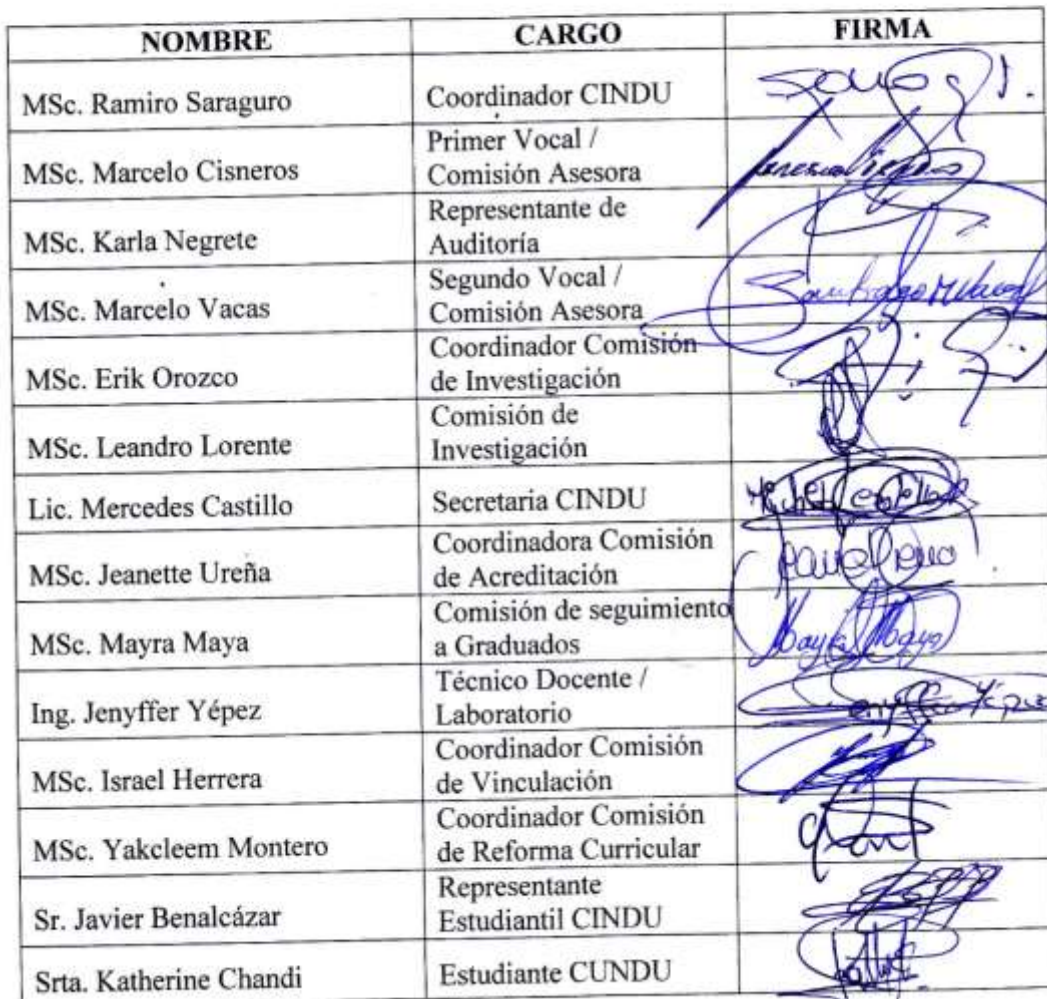 NOMBRE CARGO FIRMA
MSc. Ramiro Saraguro Coordinador CINDU
MSc. Marcelo Cisneros Primer Vocal /
Comisión Asesora
MSc. Karla Negrete Representante de
Auditoría
MSc. Marcelo Vacas Segundo Vocal /
Comisión Asesora
MSc. Erik Orozco Coordinador Comisión
de Investigación
MSc. Leandro Lorente Comisión de
Investigación
Lic. Mercedes Castillo Secretaria CINDU
MSc. Jeanette Ureña Coordinadora Comisión
de Acreditación
MSc. Mayra Maya Comisión de seguimiento
a Graduados
Mayra Maya
Ing. Jenyffer Yépez Técnico Docente /
Laboratorio
MSc. Israel Herrera Coordinador Comisión
de Vinculación
MSc. Yakcleem Montero Coordinador Comisión
de Reforma Curricular
Sr. Javier Benalcázar Representante
Estudiantil CINDU
Srta. Katherine Chandi Estudiante CUNDU